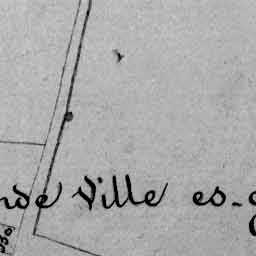 nde Ville es-